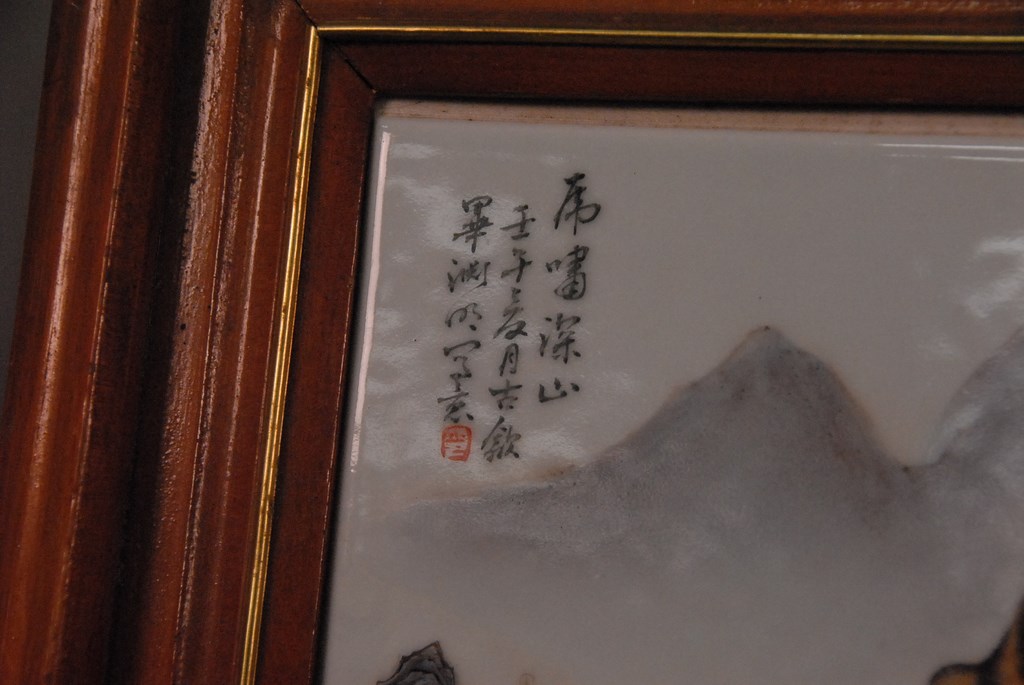 虎嘯深山
壬午之夏月古歙
畢淵明寫意